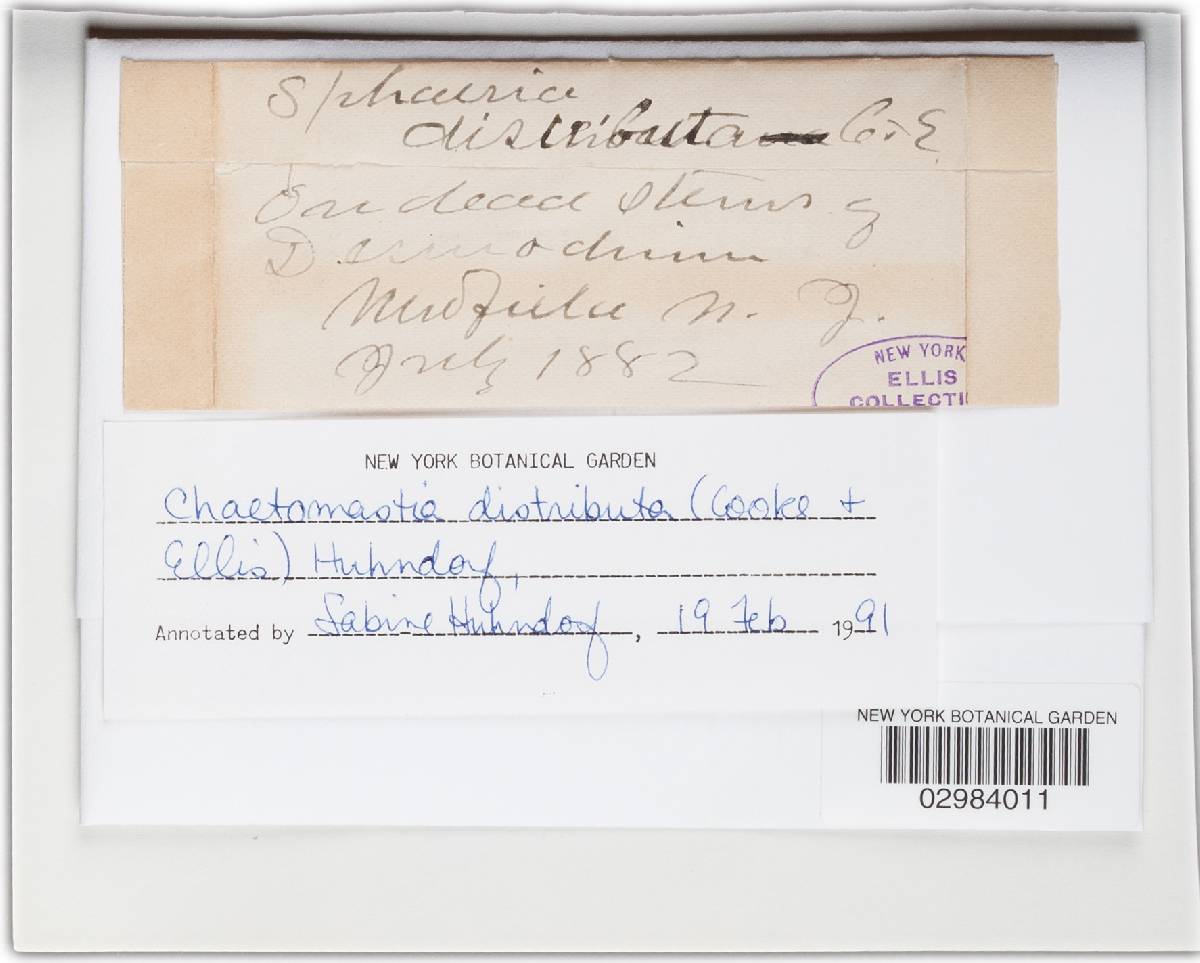 Sphaeria
distributa C. & E.
On dead stems of
Desmodium
Newfield N. J.
July 1882
NEW YORK
ELLIS
COLLECTI
NEW YORK BOTANICAL GARDEN
Chaetomastia distributa (Cooke +
Ellis) Huhndorf,
Annotated by Sabine Huhndorf, 19 Feb 1991
NEW YORK BOTANICAL GARDEN
02984011